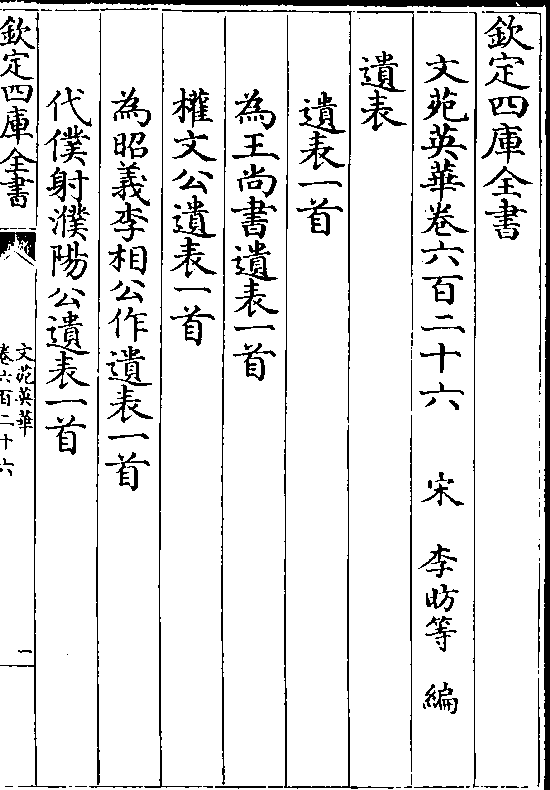 欽定四庫全書
文苑英華卷六百二十六 宋 李昉等 編
遺表
遺表一首
為王尚書遺表一首
權文公遺表一首
為昭義李相公作遺表一首
代僕射濮陽公遺表一首
欽定四庫全書
文苑英華
卷六百二十六
一